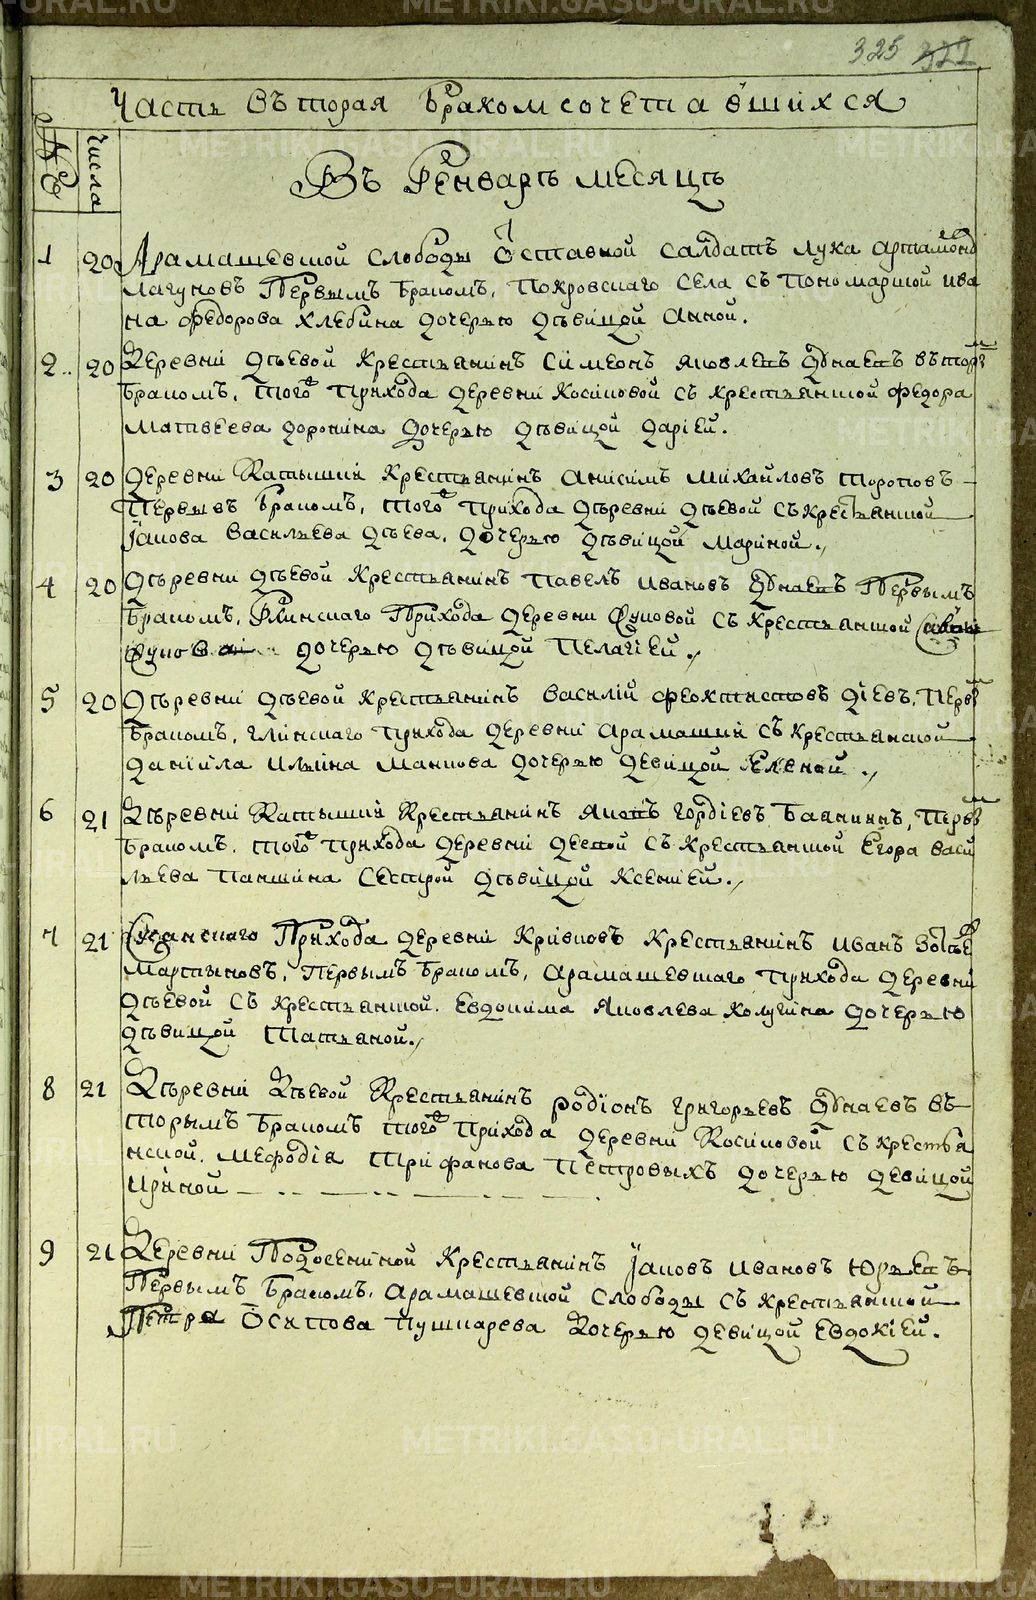 325 322
Часть Вторая Бракомсочетавшихся
№ Числа
Въ Генварѣ месяцѣ
1 20 Арамашевской слободы Отставной салдатъ лука артамоновъ
лагуновъ Первымъ Бракомъ, Покровскаго села съ Пономарской ива
на федорова хлебина дочерью дѣвицой Анной.
2 20 Деревни дѣевой крестьянинъ Симеонъ яковлевъ Однаевъ вторы
Бракомъ, того прихода деревни Косиковой съ крестьянской федора
Матвеева доронина дочерью дѣвицой дарiей.
3 20 деревни Катышки крестьянинъ анисимъ михайловъ тороповъ
Первывъ Бракомъ, того прихода дѣревни дѣевой съ крестьянской
Iакова васильева дѣева, дочерью дѣвицой Мариной.
4 20 дѣревни дѣевой крестьянинъ павелъ ивановъ Однаевъ Первымъ
Бракомъ, Глинскаго Прихода деревни съ крестьянской
дочерью дѣвицой Пелагiей.
5 20 дѣревни дѣевой крестьянинъ василiй феоктистовъ дiевъ, Перв
Бракомъ, глинскаго прихода деревни арамашки съ крестьянской
данiила ильина манкова дочерью девицой Еленой.
6 21 Дѣревни Катышки Крестьянинъ яковъ гордiевъ Баянинъ, Перв
Бракомъ, того прихода деревни деевой съ крестьянской Егора васи
льева паншина сестрой дѣвицой ксенiей.
7 21 Прихода деревни кривковъ крестьянинъ иванъ
мартыновъ, первымъ бракомъ, арамашевскаго прихода деревни
дѣевой съ крестьянской. Евдокима яковлева колугина дочерью
дѣвицой татьяной.
8 21 Дѣревни Дѣевой Крестьянинъ родiонъ григорьевъ Однаевъ въ
торымъ Бракомъ того прихода деревни Косиковой съ крестья
нской. мефодiя трифанова петровыхъ дочерью девицой
ириной
9 21 Деревни Подосениной Крестьянинъ Iаковъ ивановъ юрьевъ
Первымъ Бракомъ. арамашевской слободы съ крестьянской
Петра Осипова пушкарева дочерью девицой Евдокiей.
METRIKI.GASU-URAL.RU